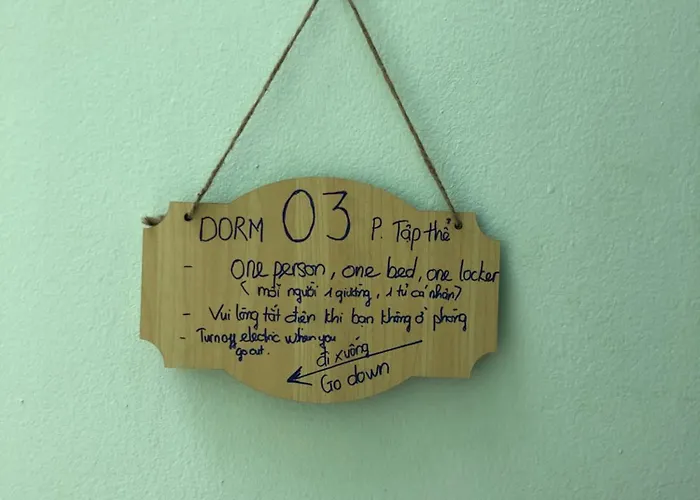 DORM 03 P. Tập thể
- One person, one bed, one locker
(mỗi người 1 giường, 1 tủ cá nhân)
- Vui lòng tắt điện khi bạn không ở phòng
- Turn off electric when you
go out.
đi xuống
Go down